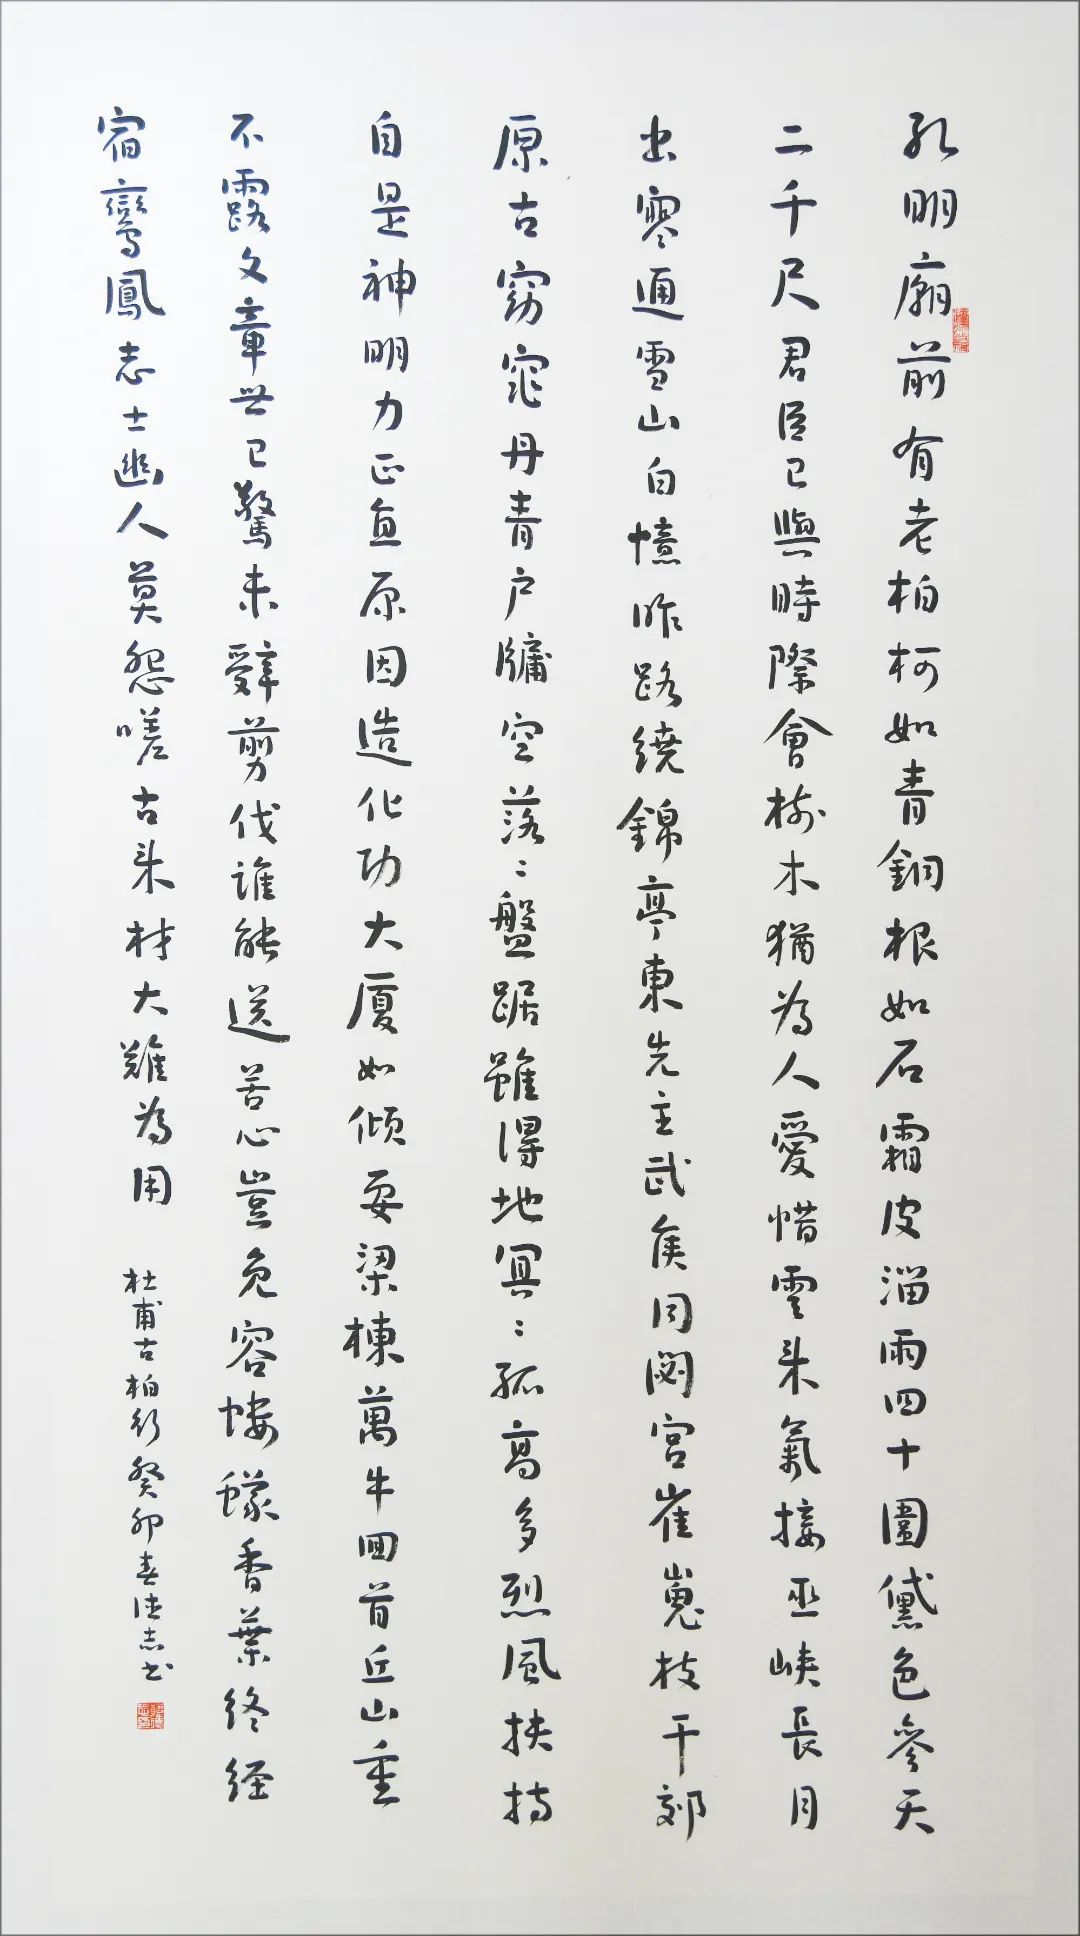 孔明廟前有老柏柯如青銅根如石霜皮溜雨四十圍黛色參天
二千尺君臣已與時際會樹木猶為人愛惜雲來氣接巫峽長月
出寒通雪山白憶昨路繞錦亭東先主武侯同閟宮崔嵬枝干郊
原古窈窕丹青戶牖空落〻盤踞雖得地冥〻孤高多烈風扶持
自是神明力正直原因造化功大廈如傾要梁棟萬牛回首丘山重
不露文章世已驚未辭剪伐誰能送苦心豈免容螻蟻香葉終經
宿鸞鳳志士幽人莫怨嗟古來材大難為用
杜甫古柏行癸卯春德志書